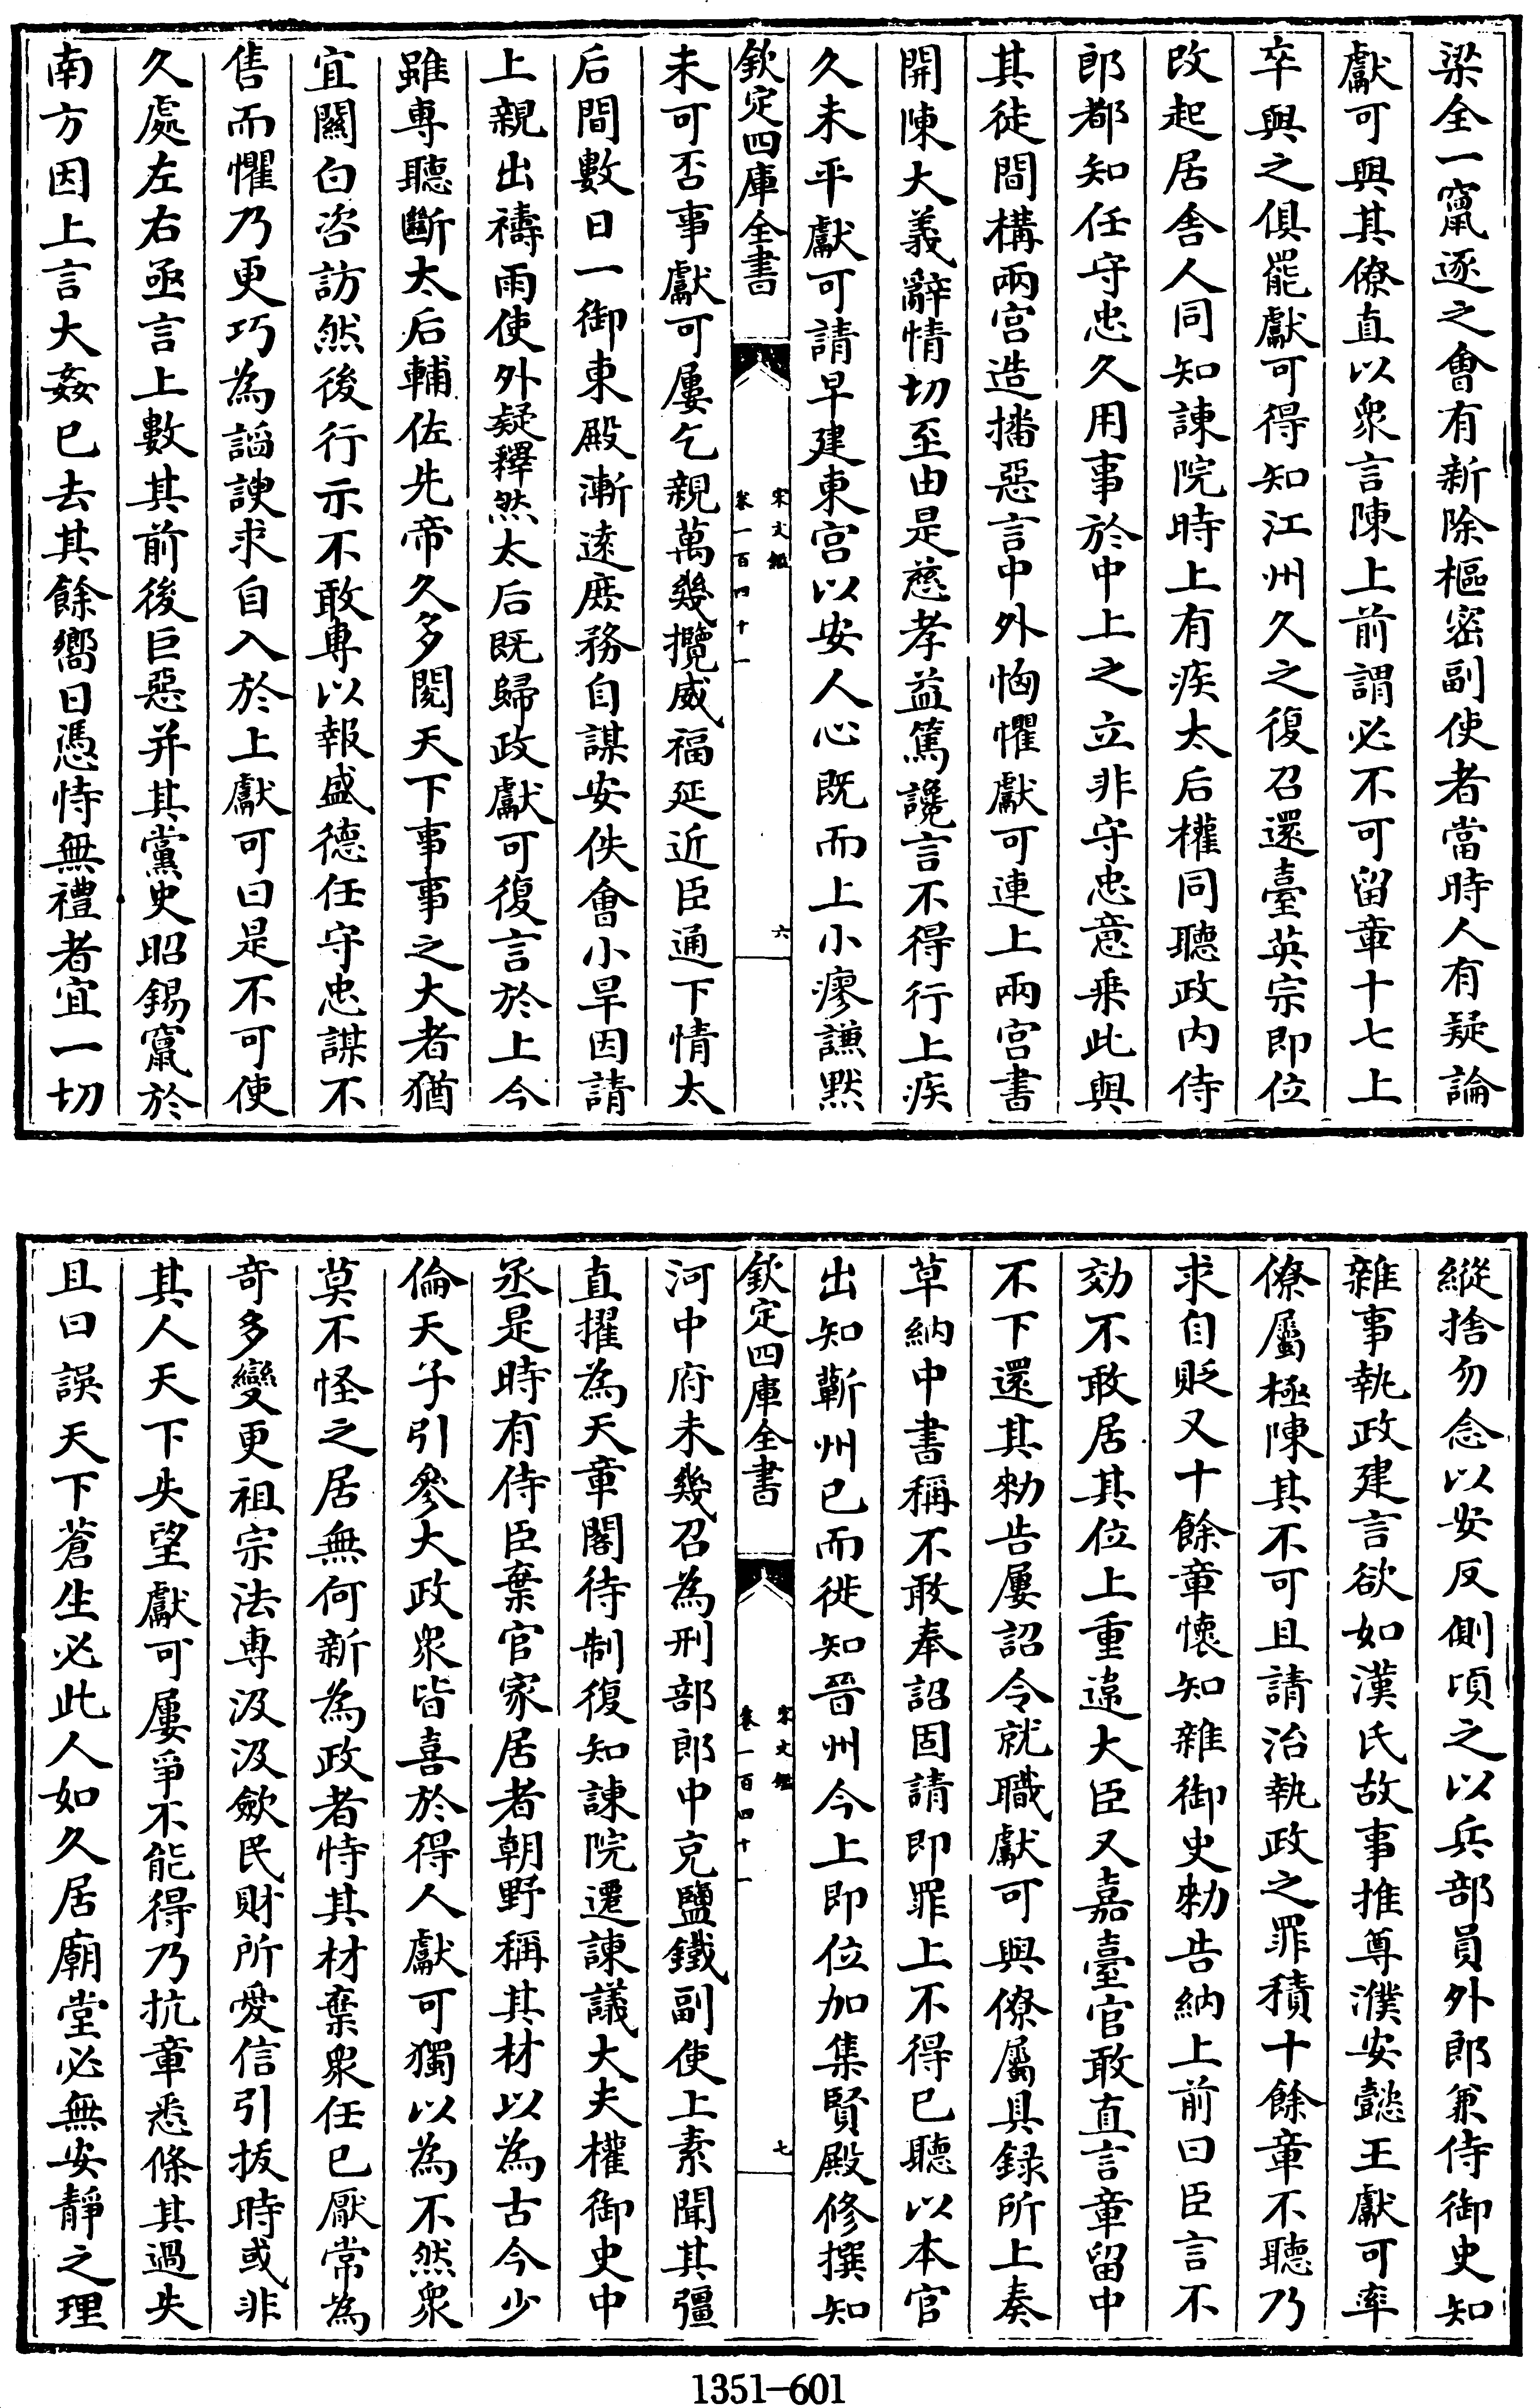 梁全一竄逐之會有新除樞密副使者當時人有疑論
獻可與其僚直以衆言陳上前謂必不可留章十七上
卒與之俱罷獻可得知江州久之復召還臺英宗即位
改起居舍人同知諫院時上有疾太后權同聽政内侍
郎都知任守忠久用事於中上之立非守忠意乗此與
其徒間構兩宫造播惡言中外恟懼獻可連上兩宫書
開陳大義辭情切至由是慈孝益篤讒言不得行上疾
久未平獻可請早建東宫以安人心既而上小瘳謙黙
欽定四庫全書
宋文鑑
卷一百四十一
六
未可否事獻可屢乞親萬幾攬威福延近臣通下情太
后間數日一御東殿漸逺庶務自謀安佚會小旱因請
上親出禱雨使外疑釋然太后既歸政獻可復言於上今
雖専聽斷太后輔佐先帝久多閲天下事事之大者猶
宜關白咨訪然後行示不敢専以報盛德任守忠謀不
售而懼乃更巧為謟諛求自入於上獻可曰是不可使
久處左右亟言上數其前後巨惡并其黨史昭錫竄於
南方因上言大姦已去其餘嚮日憑恃無禮者宜一切
縱捨勿念以安反側頃之以兵部員外郎兼侍御史知
雜事執政建言欲如漢氏故事推尊濮安懿王獻可率
僚屬極陳其不可且請治執政之罪積十餘章不聽乃
求自貶又十餘章懐知雜御史勅告納上前曰臣言不
効不敢居其位上重違大臣又嘉臺官敢直言章留中
不下還其勅告屢詔令就職獻可與僚屬具録所上奏
草納中書稱不敢奉詔固請即罪上不得已聽以本官
出知蘄州已而徙知晉州今上即位加集賢殿修撰知
欽定四庫全書
宋文鑑
卷一百四十一
七
河中府未幾召為刑部郎中充鹽鐵副使上素聞其彊
直擢為天章閣待制復知諫院遷諫議大夫權御史中
丞是時有侍臣棄官家居者朝野稱其材以為古今少
倫天子引參大政衆皆喜於得人獻可獨以為不然衆
莫不怪之居無何新為政者恃其材棄衆任已厭常為
奇多變更祖宗法専汲汲斂民財所愛信引拔時或非
其人天下失望獻可屢爭不能得乃抗章悉條其過失
且曰誤天下蒼生必此人如久居廟堂必無安靜之理
1351-601